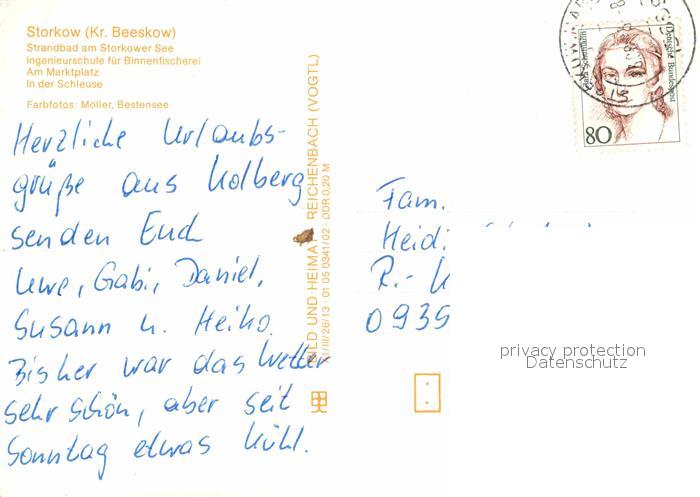 Storkow (Kr. Beeskow)
Strandbad am Storkower See
Ingenieurschule für Binnenfischerei
Am Marktplatz
In der Schleuse
Farbfotos: Möller, Bestensee
Herzliche Urlaubs-
grüße aus Kolberg
senden Euch
Uwe, Gabi, Daniel,
Susann u. Heiko.
Bisher war das Wetter
sehr schön, aber seit
Sonntag etwas kühl.
BILD UND HEIMAT REICHENBACH (VOGTL)
III/26/13 · 01 05 0341/02 · DDR 0,20 M
Deutsche Bundespost
80
Clara Schumann
Fam.
Heidi
R.-
0935
privacy protection
Datenschutz